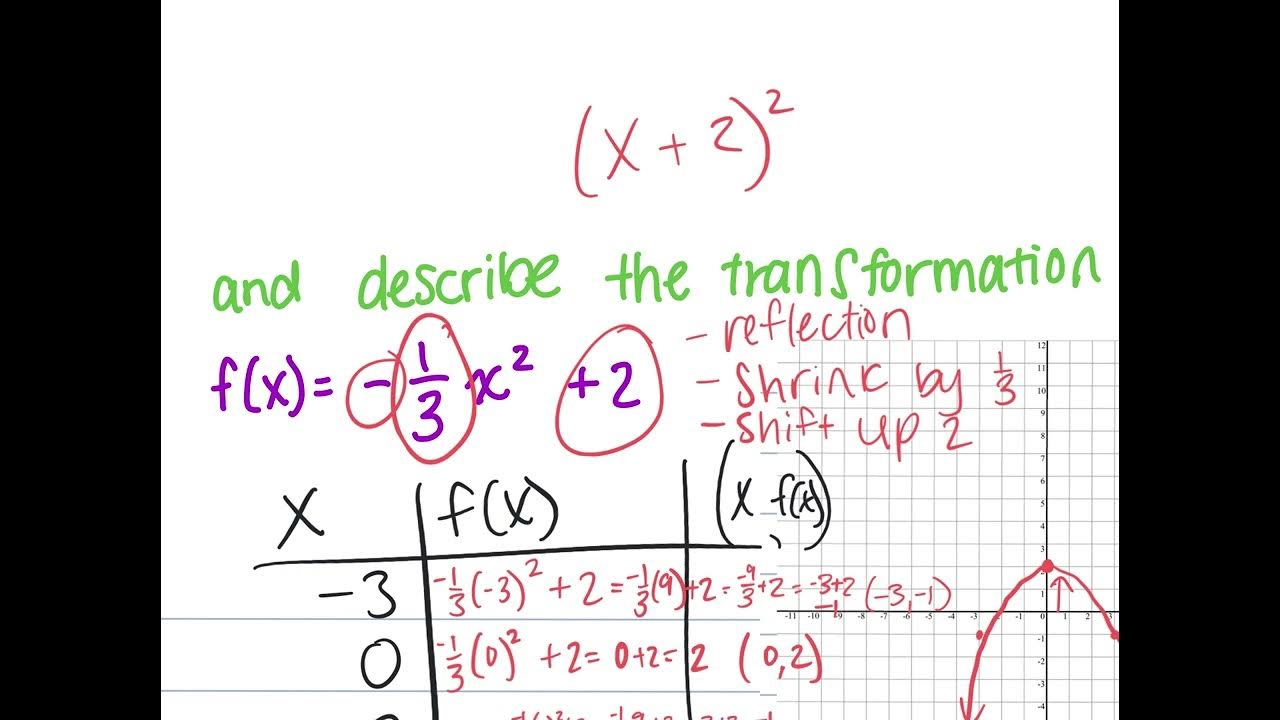 (x + 2)²
and describe the transformation
- reflection
f(x) = -1/3 x² + 2
- Shrink by 1/3
- Shift up 2
x | f(x) | (x, f(x))
-3 | -1/3(-3)² + 2 = -1/3(9) + 2 = -9/3 + 2 = -3+2 (-3, -1)
-1
0 | -1/3(0)² + 2 = 0+2 = 2 (0, 2)
12
11
10
9
8
7
6
5
4
3
2
1
-11 -10 -9 -8 -7 -6 -5 -4 -3 -2 -1 0 1 2 3
-1
-2
-3
-4